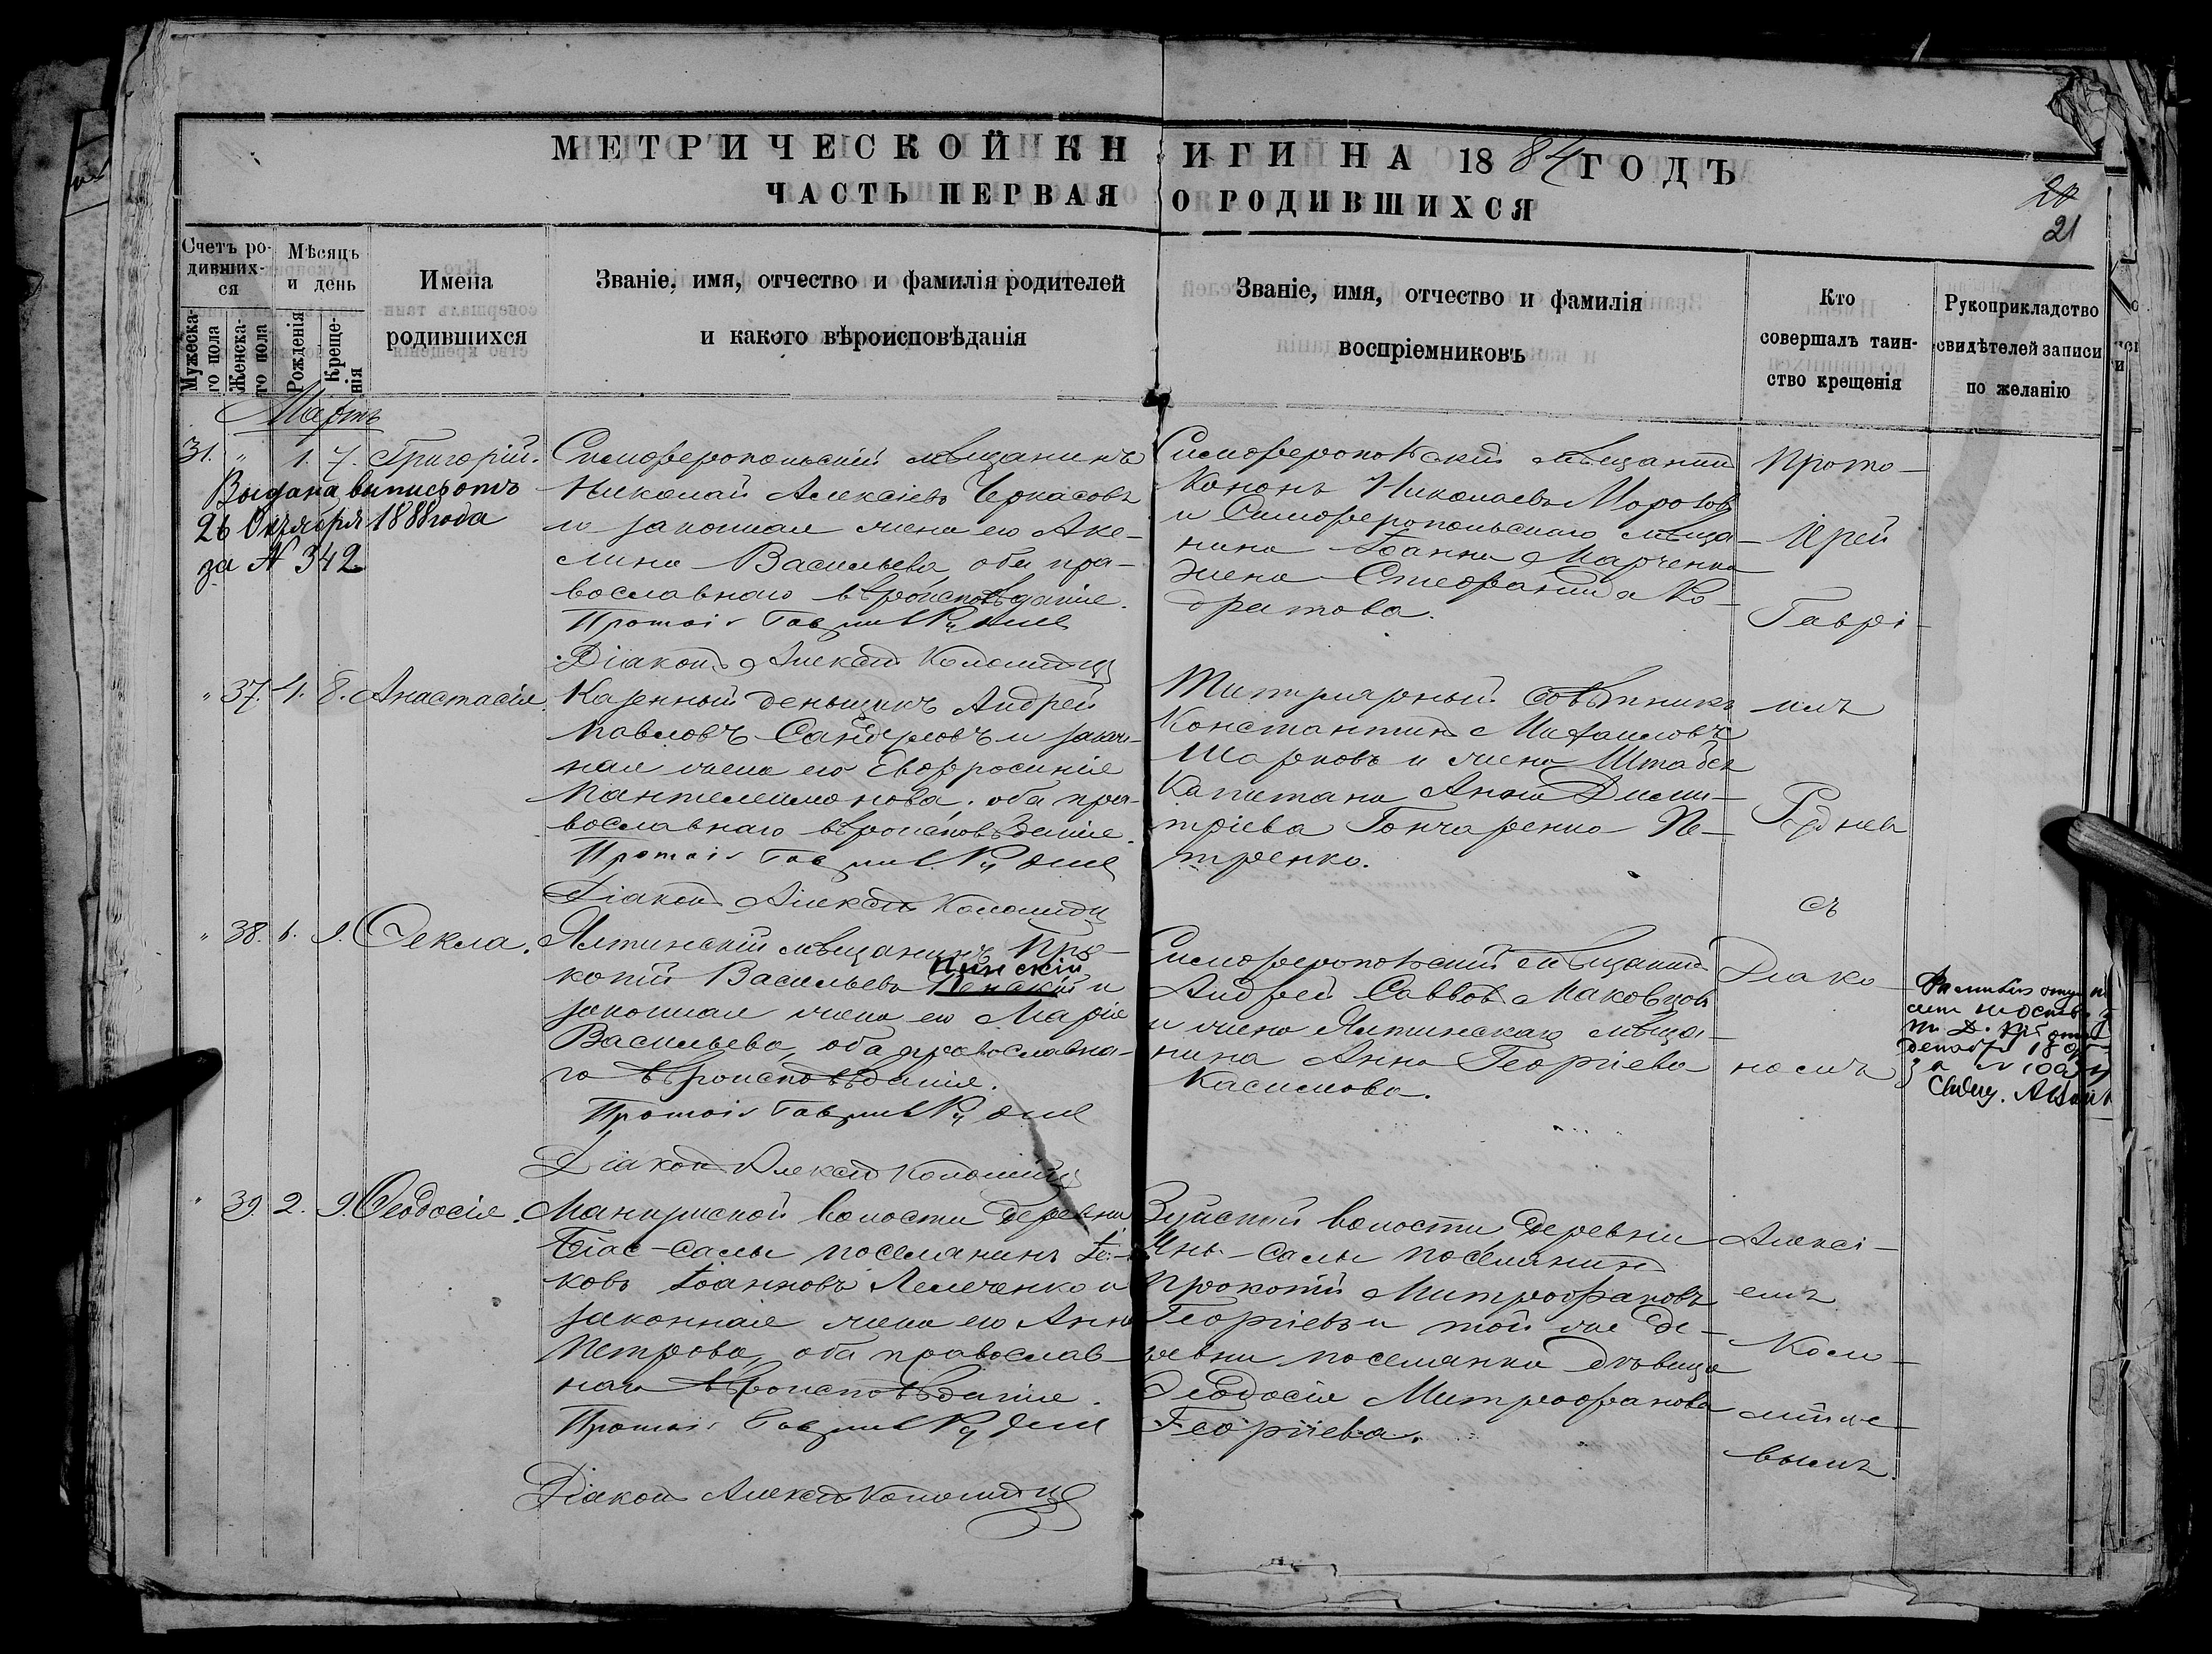 МЕТРИЧЕСКОЙ КНИГИ НА 1884 ГОДЪ
ЧАСТЬ ПЕРВАЯ О РОДИВШИХСЯ
20
21
Счетъ ро-
дивших-
ся
Мужеска-
го пола
Женска-
го пола
Мѣсяцъ
и день
Рожденія
Креще-
нія
Имена
родившихся
Званіе, имя, отчество и фамилія родителей
и какого вѣроисповѣданія
Званіе, имя, отчество и фамилія
воспріемниковъ
Кто
совершалъ таин-
ство крещенія
Рукоприкладство
свидѣтелей записи
по желанію
Мартъ
31. " 1. 7. Григорій.
Выдана выпись отъ
26 Октября 1888 года
за № 342
Симферопольскій мѣщанинъ
Николай Алексіевъ Черкасовъ
и законная жена его Аке-
лина Васильева, оба пра-
вославнаго вѣроисповѣданія.
Протоі Гавріилъ Рудневъ
Діаконъ Алексій Коломійц
Симферопольскій мѣщанинъ
Кононъ Николаевъ Морозовъ
и Симферопольскаго мѣща-
нина Іоанна Марченко
жена Стефанида Ко-
дратова.
" 37. 4. 8. Анастасія.
Казенный деньщикъ Андрей
Павловъ и закон-
ная жена его Евфросинія
Пантелеимонова, оба пра-
вославнаго вѣроисповѣданія.
Протоі Гавріилъ Рудневъ
Діаконъ Алексій Коломійц
Титулярный Совѣтникъ
Константинъ Михаиловъ
Шарковъ и жена Штабсъ
Капитана Анна Дими-
тріева Гончаренко-Пе-
тренко.
" 38. 6. 9. Ѳекла.
Ялтинскій мѣщанинъ Про-
копій Васильевъ Пенскій и
Пинскій
законная жена его Марія
Васильева, оба православна-
го вѣроисповѣданія.
Протоі Гавріилъ Рудневъ
Діаконъ Алексій Коломійц
Симферопольскій мѣщанинъ
Андрей Саввовъ Маковцовъ
и жена Ялтинскаго мѣща-
нина Анна Георгіева
Касимова.
" 39. 2. 9. Ѳеодосія.
Мангушской волости деревни
Біас-салы поселянинъ Іа-
ковъ Іоанновъ Лемеченко и
законная жена его Анна
Петрова, оба православ-
наго вѣроисповѣданія.
Протоі Гавріилъ Рудневъ
Діаконъ Алексій Коломійц
Зуйской волости деревни
Ени-салы поселянинъ
Прокопій Митрофановъ
Георгіевъ и той же де-
ревни поселянка дѣвица
Ѳеодосія Митрофанова
Георгіева.
Прото-
іерей
Гаврі-
илъ
Рудневъ
съ
Діако-
номъ
Алексі-
емъ
Коло-
мійце-
вымъ.
декабря
за №